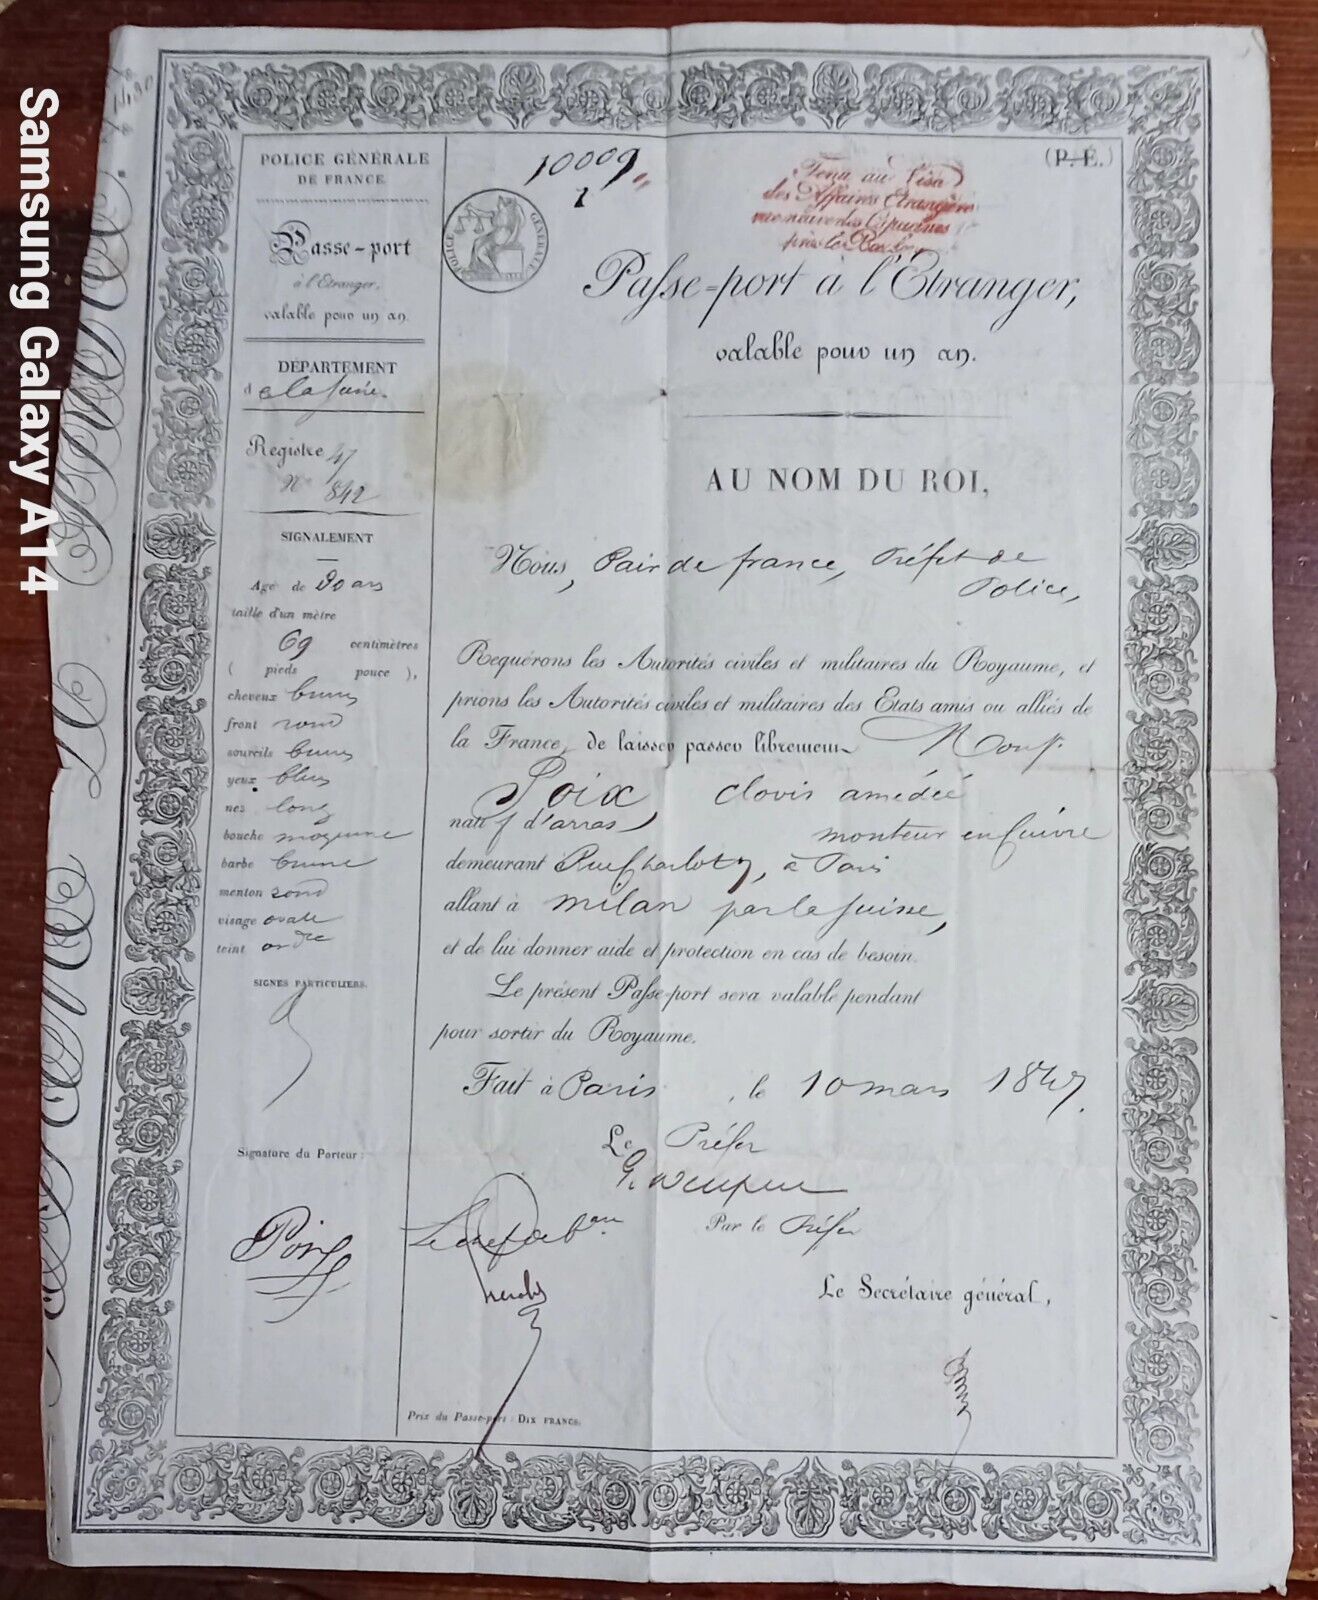 Samsung Galaxy A14
POLICE GÉNÉRALE
DE FRANCE
Passe-port
à l'Etranger,
valable pour un an.
DÉPARTEMENT
de la Seine
Registre 47
N° 842
SIGNALEMENT
Agé de ans
taille d'un mètre
69 centimètres
( pieds pouce ),
cheveux bruns
front rond
sourcils bruns
yeux bleus
nez long
bouche moyenne
barbe brune
menton rond
visage ovale
teint ordre
SIGNES PARTICULIERS.
Signature du Porteur :
Poix
10009
POLICE GÉNÉRALE
(P. E.)
Tenu au Visa
des Affaires Etrangères
Passe-port à l'Etranger,
valable pour un an.
AU NOM DU ROI,
Nous, Pair de france, Préfet de
Police,
Requérons les Autorités civiles et militaires du Royaume, et
prions les Autorités civiles et militaires des Etats amis ou alliés de
la France, de laisser passer librement
Poix clovis amédée
natif d'arras monteur en Cuivre
demeurant Rue Charlot 7, à Paris
allant à milan par la Suisse,
et de lui donner aide et protection en cas de besoin.
Le présent Passe-port sera valable pendant
pour sortir du Royaume.
Fait à Paris, le 10 mars 1847.
Le Préfet
Par le Préfet
Le Secrétaire général,
Prix du Passe-port : DIX FRANCS.